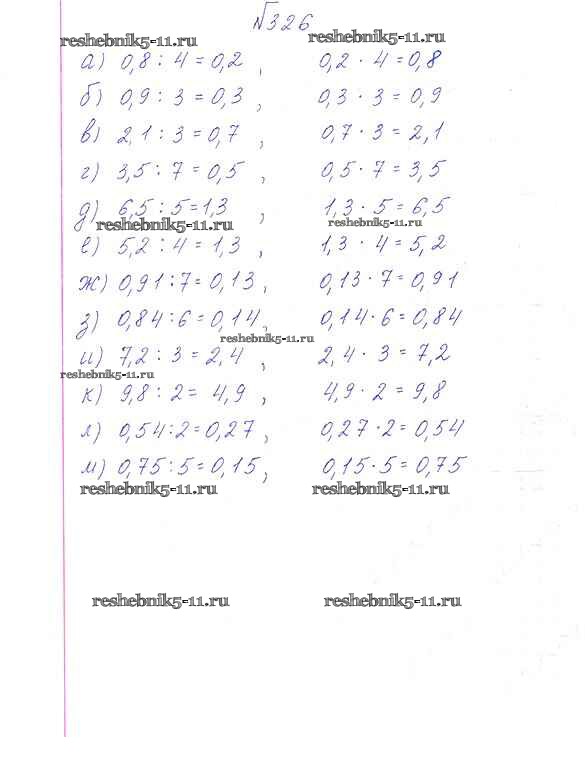 №326
reshebnik5-11.ru reshebnik5-11.ru
а) 0,8 : 4 = 0,2 , 0,2 · 4 = 0,8
б) 0,9 : 3 = 0,3 , 0,3 · 3 = 0,9
в) 2,1 : 3 = 0,7 , 0,7 · 3 = 2,1
г) 3,5 : 7 = 0,5 , 0,5 · 7 = 3,5
д) 6,5 : 5 = 1,3 , 1,3 · 5 = 6,5
reshebnik5-11.ru reshebnik5-11.ru
е) 5,2 : 4 = 1,3 , 1,3 · 4 = 5,2
ж) 0,91 : 7 = 0,13 , 0,13 · 7 = 0,91
з) 0,84 : 6 = 0,14 , 0,14 · 6 = 0,84
reshebnik5-11.ru
и) 7,2 : 3 = 2,4 , 2,4 · 3 = 7,2
reshebnik5-11.ru
к) 9,8 : 2 = 4,9 , 4,9 · 2 = 9,8
л) 0,54 : 2 = 0,27 , 0,27 · 2 = 0,54
м) 0,75 : 5 = 0,15 , 0,15 · 5 = 0,75
reshebnik5-11.ru reshebnik5-11.ru
reshebnik5-11.ru reshebnik5-11.ru